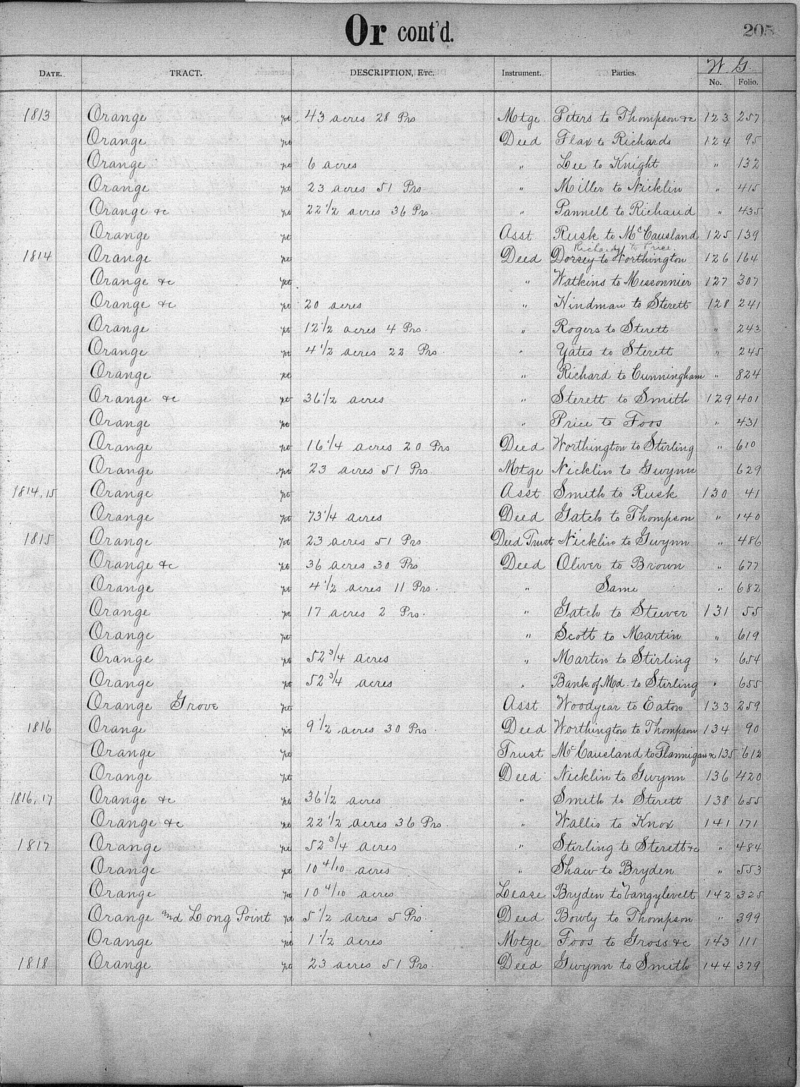 Or cont'd. 205
W. G.
DATE. TRACT. DESCRIPTION, ETC. Instrument. Parties. No. Folio.
1813 Orange pt 43 acres 28 Prs Mtge Peters to Thompson &c 123 257
Orange pt Deed Flax to Richards 124 95
Orange pt 6 acres " Lee to Knight " 132
Orange pt 23 acres 51 Prs " Miller to Nicklin " 415
Orange &c pt 22 1/2 acres 36 Prs. " Pannell to Richaud " 435
Orange pt Asst Rusk to McCausland 125 139
Richard to Price
1814 Orange pt Deed Dorsey to Worthington 126 164
Orange &c pt " Watkins to Messonnier 127 307
Orange &c pt 20 acres " Hindman to Sterett 128 241
Orange pt 12 1/2 acres 4 Prs. " Rogers to Sterett " 243
Orange pt 4 1/2 acres 22 Prs. " Yates to Sterett " 245
Orange pt " Richard to Cunningham " 824
Orange &c pt 36 1/2 acres " Sterett to Smith 129 401
Orange pt " Price to Foos " 431
Orange pt 16 1/4 acres 20 Prs Deed Worthington to Stirling " 610
Orange pt 23 acres 51 Prs. Mtge Nicklin to Gwynn " 629
1814,15 Orange pt Asst Smith to Rusk 130 41
Orange pt 73 1/4 acres Deed Gatch to Thompson " 140
1815 Orange pt 23 acres 51 Prs Deed Trust Nicklin to Gwynn " 486
Orange &c pt 36 acres 30 Prs Deed Oliver to Brown " 677
Orange pt 4 1/2 acres 11 Prs. " Same " 682
Orange pt 17 acres 2 Prs. " Gatch to Stiever 131 55
Orange pt " Scott to Martin " 619
Orange pt 52 3/4 acres " Martin to Stirling " 654
Orange pt 52 3/4 acres " Bank of Md. to Stirling " 655
Orange Grove pt Asst Woodyear to Eaton 133 259
1816 Orange pt 9 1/2 acres 30 Prs. Deed Worthington to Thompson 134 90
Orange pt Trust McCausland to Flannigan &c 135 612
Orange pt Deed Nicklin to Gwynn 136 420
1816,17 Orange &c pt 36 1/2 acres " Smith to Sterett 138 655
Orange &c pt 22 1/2 acres 36 Prs. " Wallis to Knox 141 171
1817 Orange pt 52 3/4 acres " Stirling to Sterett &c " 484
Orange pt 10 4/10 acres " Shaw to Bryden " 553
Orange pt 10 4/10 acres Lease Bryden to Vangylevelt 142 325
Orange and Long Point pt 5 1/2 acres 5 Prs Deed Bowly to Thompson " 399
Orange pt 1 1/2 acres Mtge Foos to Gross &c 143 111
1818 Orange pt 23 acres 51 Prs Deed Gwynn to Smith 144 379